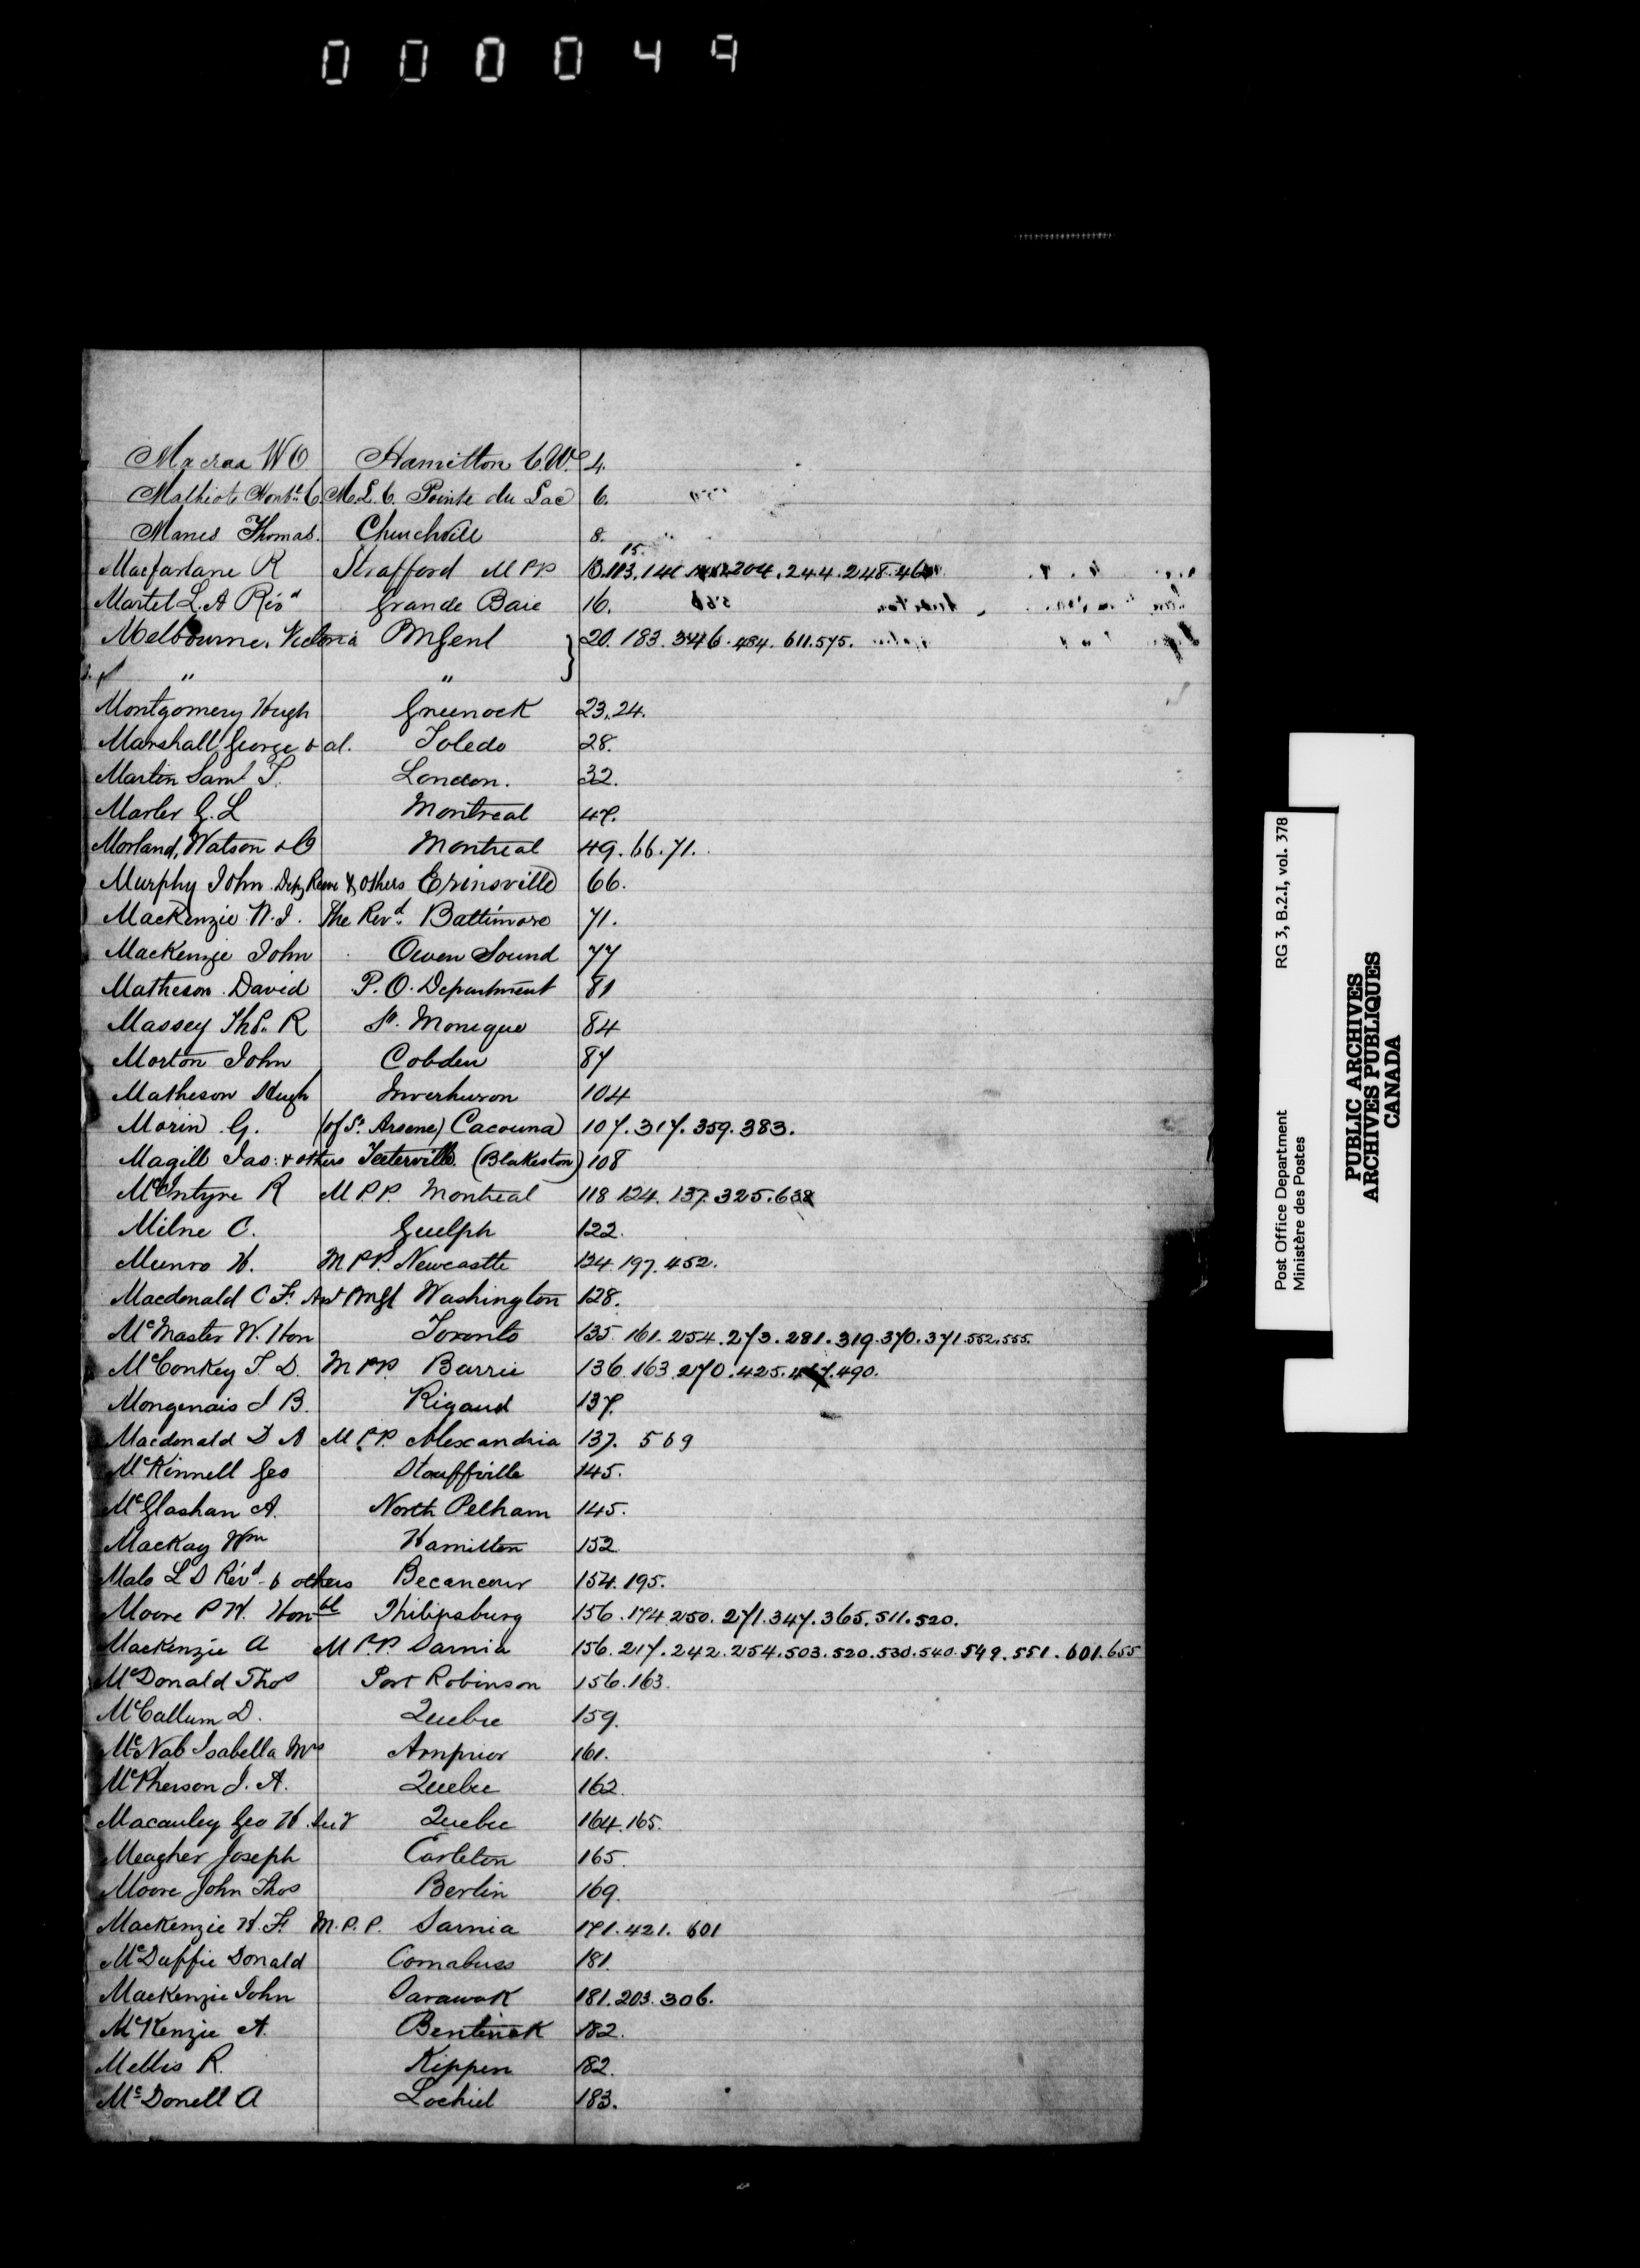 000049
Macraa W O Hamilton C.W. 4.
Malhiot Honble C M.L.C. Pointe du Lac 6.
Manes Thomas. Churchville 8.
15.
Macfarlane R Stratford M P P 13.113.141 204.244.248.
Martel L. A Révd Grande Baie 16.
Melbourne, Victoria P M Genl 20.183.346.484.611.575.
" "
Montgomery Hugh Greenock 23.24.
Marshall George & al. Toledo 28.
Martin Saml T. London. 32.
Marler G. L Montreal 47.
Morland, Watson & Co Montreal 49.66.71.
Murphy John Depy Reeve & others Erinsville 66.
MacKenzie N. I. The Revd. Baltimore 71.
MacKenzie John Owen Sound 77
Matheson David P.O. Department 81
Massey Thos. R St. Monique 84
Morton John Cobden 87
Matheson Hugh Inverhuron 104
Morin G. (of St. Arsene) Cacouna 107.317.359.383.
Magill Jas: & others Teeterville (Blakeston) 108
McIntyre R M P.P. Montreal 118 124. 137.325.638
Milne C. Guelph 122.
Munro H. M P.P. Newcastle 124.197.452.
Macdonald C F. Ast P M Gl Washington 128.
McMaster W. Hon Toronto 135.161.254.273.281.319.370.371.552.555.
McConkey T. D. M P P Barrie 136.163.270.425.490.
Mongenais J B. Rigaud 137.
Macdonald D A M P.P. Alexandria 137. 569
McKinnell Geo Stouffville 145.
McGlashan A. North Pelham 145.
MacKay Wm Hamilton 152
Malo L D Révd & others Becancour 154.195.
Moore P H. Honble Philipsburg 156.174.250.271.347.365.511.520.
Mackenzie A M P.P. Sarnia 156.217.242.254.503.520.530.540.549.551.601.655
McDonald Thos Port Robinson 156.163.
McCallum D. Quebec 159.
McNab Isabella Mrs Arnprior 161.
McPherson J. A. Quebec 162
Macauley Geo H. Quebec 164.165.
Meagher Joseph Carleton 165.
Moore John Thos Berlin 169.
Mackenzie H. F. M.P.P. Sarnia 171.421. 601
McDuffie Donald Cornabuss 181.
MacKenzie John Sarawak 181.203.306.
McKenzie A. Bentinck 182.
Mellis R. Kippen 182.
McDonell A Lochiel 183.
RG 3, B.2.I, vol. 378
Post Office Department
Ministère des Postes
PUBLIC ARCHIVES
ARCHIVES PUBLIQUES
CANADA